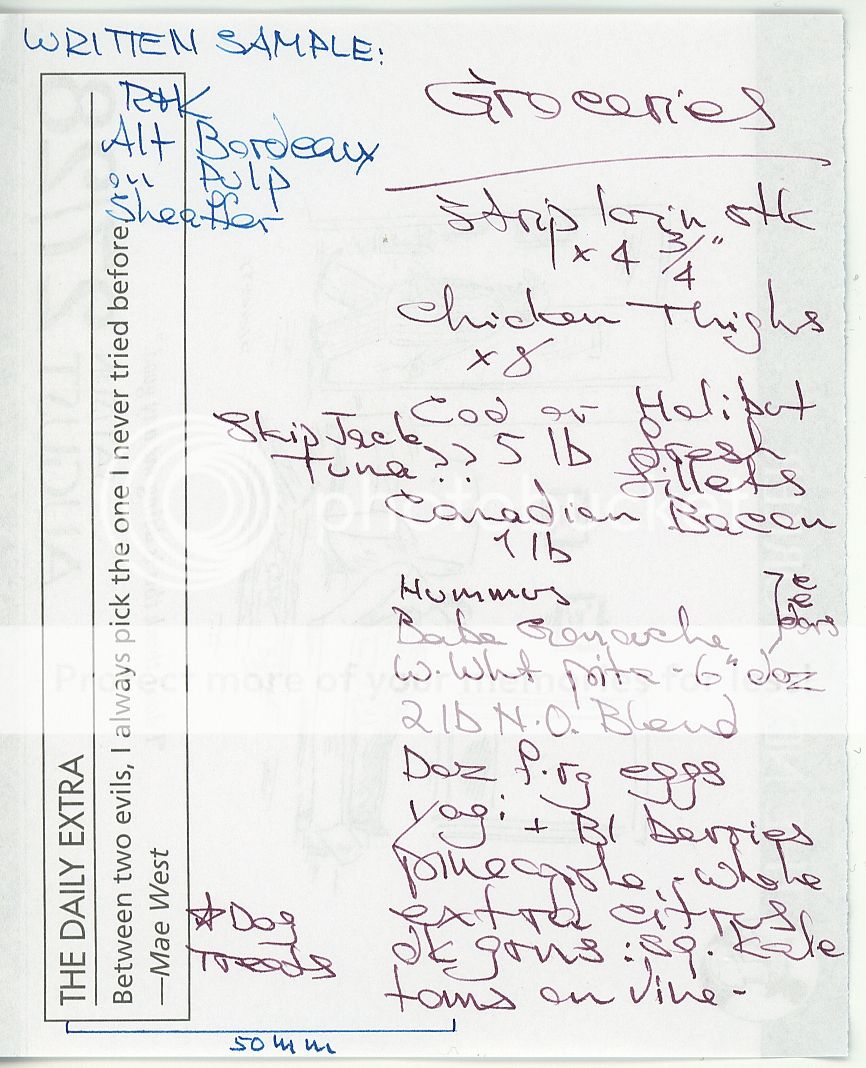 WRITTEN SAMPLE:
R&K
Alt Bordeaux
on Pulp
Sheaffer
Groceries
Strip loin stk
x 4 3/4"
Chicken Thighs
x 8
Cod or Halibut
5 lb fresh
fillets
Skip Jack
Tuna??
Canadian Bacon
1 lb
Hummus
Baba Ganache
W. Wht pita - 6" doz
2 lb N.O. Blend
Doz f. rg eggs
Yogi + Bl berries
pineapple - whole
extra citrus
dk grns: sp. Kale
toms on vine -
*Dog
Treats
THE DAILY EXTRA
Between two evils, I always pick the one I never tried before.
—Mae West
50 mm
photobucket
Protect more of your memories for less!